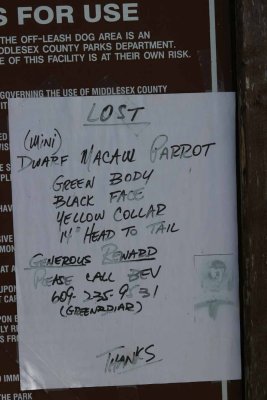 S FOR USE
THE OFF-LEASH DOG AREA IS AN
MIDDLESEX COUNTY PARKS DEPARTMENT.
E OF THIS FACILITY IS AT THEIR OWN RISK.
GOVERNING THE USE OF MIDDLESEX COUNTY
LOST
(MINI)
DWARF MACAW PARROT
GREEN BODY
BLACK FACE
YELLOW COLLAR
14" HEAD TO TAIL
GENEROUS REWARD
PLEASE CALL BEV
609-235-9531
THANKS
THE PARK